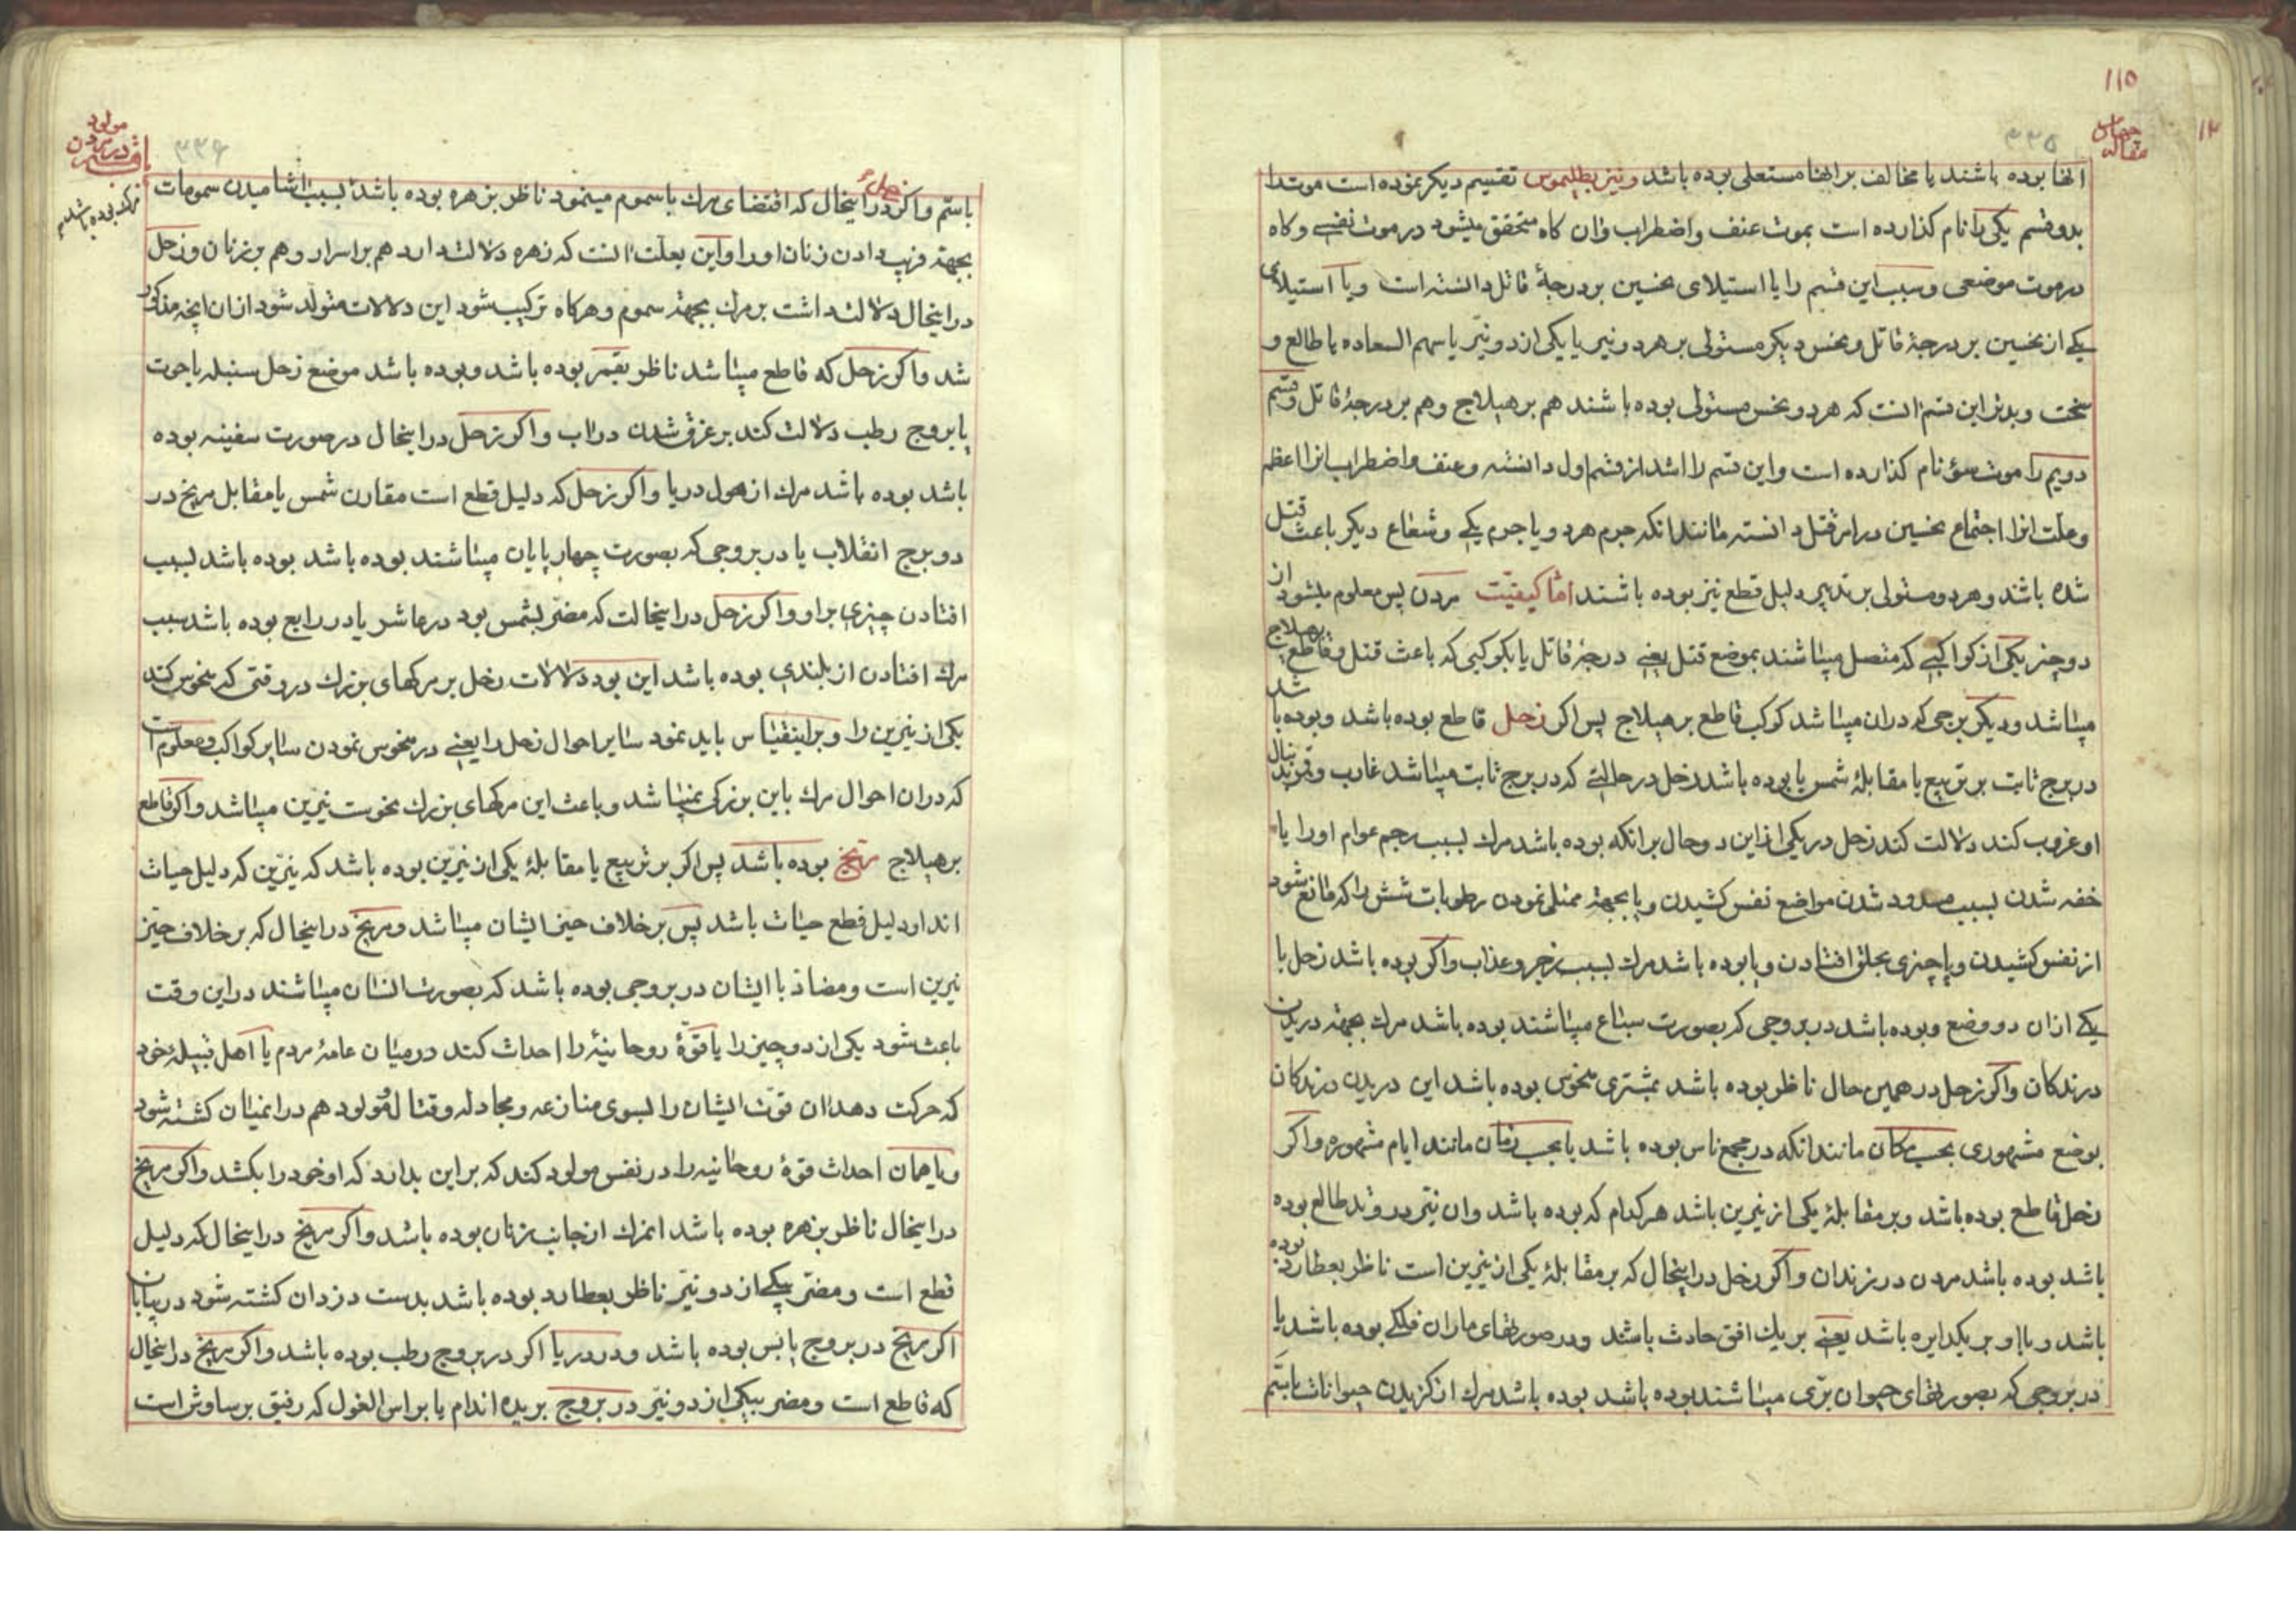 ۱۱۵
۳۳۵
چهارم
مقاله
انها بوده باشند یا مخالف بر انها مستعلی بوده باشد و نیز بطلیموس تقسیم دیکر نموده است موت را
بدو قسم یکی را نام کذارده است بموت عنف و اضطراب و ان کاه متحقق میشود در موت نفسی و کاه
در موت موضعی و سبب این قسم را یا استیلای نحسین بر درجهٔ قاتل دانسته است و یا استیلای
یکی از نحسین بر درجهٔ قاتل و نحس دیکر مستولی بر هر دو نیر یا یکی از دو نیر یا سهم السعاده یا طالع و
سخت و بدتر این قسم انست که هر دو نحس مستولی بوده باشند هم بر هیلاج و هم بر درجهٔ قاتل و قسم
دویم را موت سوء نام کذارده است و این قسم را اشد از قسم اول دانسته و عنف و اضطراب انرا اعظم
و علت انرا اجتماع نحسین در امر قتل دانسته مانند انکه جرم هر دو یا جرم یکی و شعاع دیکر باعث قتل
شده باشد و هر دو مستولی بر تدبیر دلیل قطع نیز بوده باشند اما کیفیّت مردن پس معلوم میشود از
دو چیز یکی از کواکبی که متصل میباشند بموضع قتل یعنی درجهٔ قاتل یا بکوکبی که باعث قتل و قاطع بر هیلاج
میباشد و دیکر برجی که در ان میباشد کوکب قاطع بر هیلاج پس اکر زحل قاطع بوده باشد و بوده باشد
در برج ثابت بر تربیع یا مقابلهٔ شمس یا بوده باشد زحل در حالتی که در برج ثابت میباشد غارب و قمر بدنبال
او غروب کند دلالت کند زحل در یکی از این دو حال بر انکه بوده باشد مرك بسبب رجم عوام او را یا
خفه شدن بسبب مسدود شدن مواضع نفس کشیدن و یا بجهة ممتلی نمودن رطوبات شش را که مانع شود
از نفس کشیدن و یا چیزی بحلق افتادن و یا بوده باشد مرك بسبب زجر و عذاب و اکر بوده باشد زحل با
یکی از ان دو وضع و بوده باشد در بروجی که بصورت سباع میباشند بوده باشد مرك بجهة دریدن
درندکان و اکر زحل در همین حال ناظر بوده باشد بمشتری منحوس بوده باشد این دریدن درندکان
بوضع مشهوری بحسب مکان مانند انکه در مجمع ناس بوده باشد یا بحسب زمان مانند ایام مشهوره و اکر
زحل قاطع بوده باشد و بر مقابلهٔ یکی از نیرین باشد هر کدام که بوده باشد و ان نیر در وتد طالع بوده
باشد بوده باشد مردن در زندان و اکر زحل در اینحال که بر مقابلهٔ یکی از نیرین است ناظر بعطارد بوده
باشد و با او بر یکدایره باشد یعنی بر یك افق حادث باشند و در صورتهای ماران فلکی بوده باشد یا
در بروجی که بصورتهای حیوان برّی میباشند بوده باشد بوده باشد مرك از کزیدن حیوانات با سم
۳۳۶
مولود
در مردن
نرسد بوده باشد
باسم و اکر زحل در اینحال که اقتضای مرك با سموم مینمود ناظر بزهره بوده باشد بسبب اشامیدن سمومات
بجهة فریب دادن زنان او را و این بعلت انست که زهره دلالت دارد هم بر اسرار و هم بر زنان و زحل
در اینحال دلالت داشت بر مرك بجهة سموم و هرکاه ترکیب شود این دلالات متولد شود از ان انچه مذکور
شد و اکر زحل که قاطع میباشد ناظر بقمر بوده باشد و بوده باشد موضع زحل سنبله یا حوت
یا بروج رطب دلالت کند بر غرق شدن در اب و اکر زحل در اینحال در صورت سفینه بوده
باشد بوده باشد مرك از هول دریا و اکر زحل که دلیل قطع است مقارن شمس یا مقابل مریخ در
دو برج انقلاب یا در بروجی که بصورت چهارپایان میباشند بوده باشد بوده باشد بسبب
افتادن چیزی بر او و اکر زحل در اینحالت که مضر بشمس بود در عاشر یا در رابع بوده باشد سبب
مرك افتادن از بلندی بوده باشد این بود دلالات زحل بر مرکهای بزرك در وقتی که منحوس کند
یکی از نیرین را و بر اینقیاس باید نمود سایر احوال زحل را یعنی در منحوس نمودن سایر کواکب و معلوم است
که در ان احوال مرك باین بزرکی نمیباشد و باعث این مرکهای بزرك نحوست نیرین میباشد و اکر قاطع
بر هیلاج مریخ بوده باشد پس اکر بر تربیع یا مقابلهٔ یکی از نیرین بوده باشد که نیرین که دلیل حیات
اند او دلیل قطع حیات باشد پس بر خلاف حیز ایشان میباشد و مریخ در اینحال که بر خلاف حیز
نیرین است و مضاد با ایشان در بروجی بوده باشد که بصورت انسان میباشند در این وقت
باعث شود یکی از دو چیز را یا قوّهٔ روحانیهٔ را احداث کند در میان عامهٔ مردم یا اهل قبیلهٔ خود
که حرکت دهد ان قوّت ایشان را بسوی منازعه و مجادله و قتال و مولود هم در انمیان کشته شود
و یا همان احداث قوهٔ روحانیه را در نفس مولود کند که بر این بدارد که او خود را بکشد و اکر مریخ
در اینحال ناظر بزهره بوده باشد انمرك از جانب زنان بوده باشد و اکر مریخ در اینحال که دلیل
قطع است و مضر بیکی از دو نیر ناظر بعطارد بوده باشد بدست دزدان کشته شود در بیابان
اکر مریخ در بروج یابس بوده باشد و در دریا اکر در بروج رطب بوده باشد و اکر مریخ در اینحال
که قاطع است و مضر بیکی از دو نیر در بروج بریده اندام یا براس الغول که رفیق برساوش است